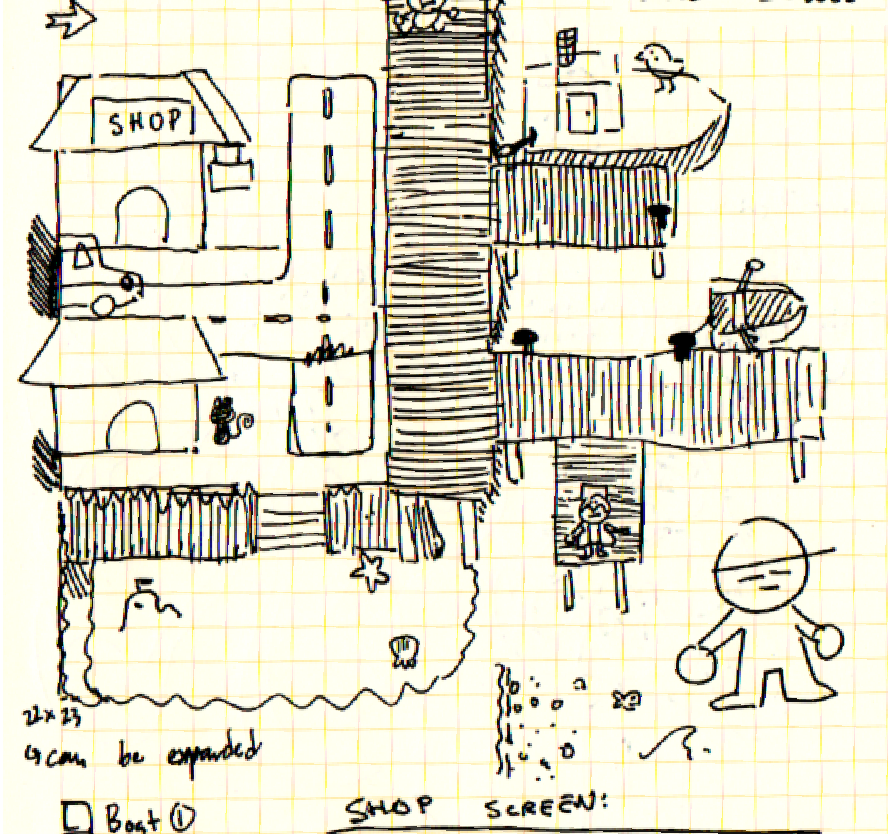 SHOP
22x23
↳ can be expanded
Boat ①
SHOP SCREEN: